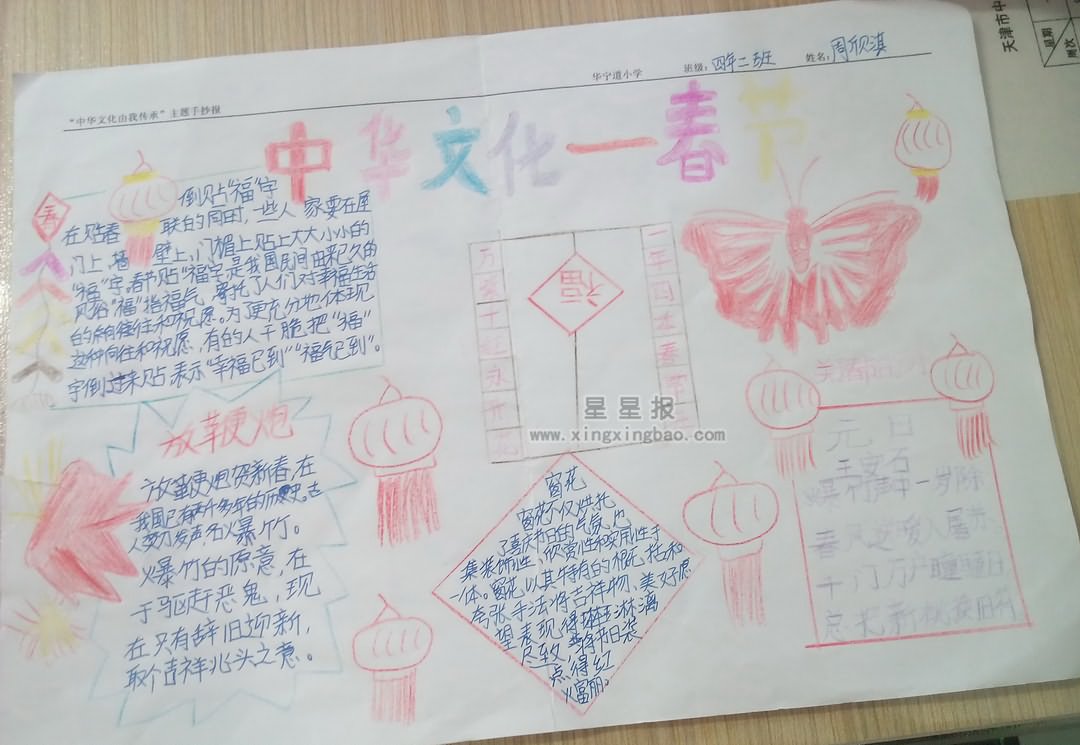 "中华文化由我传承"主题手抄报
华宁道小学
班级：四年二班
姓名：周欣淇
天津市中
星期
中华文化一春节
春
倒贴"福"字
在贴春联的同时，一些人家要在屋
门上，墙壁上，门楣上贴上大大小小的
"福"字。春节贴"福"字，是我国民间由来已久的
风俗"福"指福气，寄托了人们对幸福生活
的向往和祝愿。为了更充分地体现
这种向往和祝愿，有的人干脆把"福"
字倒过来贴，表示"幸福已到""福气已到"。
放鞭炮
放鞭炮贺新春，在
我国已有两千多年的历史。古
爆竹的原意，在
于驱赶恶鬼，现
在只有辞旧迎新，
取个吉祥兆头之意。
福
一年四
春
万
红永
星星报
www.xingxingbao.com
窗花
窗花不仅烘托
了喜庆节日的气氛，也
集装饰性，欣赏性和实用性于
一体。窗花以其特有的概括和
夸张手法将吉祥物，美好愿
望表现得淋漓
尽致，将节日装
点得红
火富丽。
元日
王安石
爆竹声一岁除
春风送暖入屠
千门万户瞳瞳日